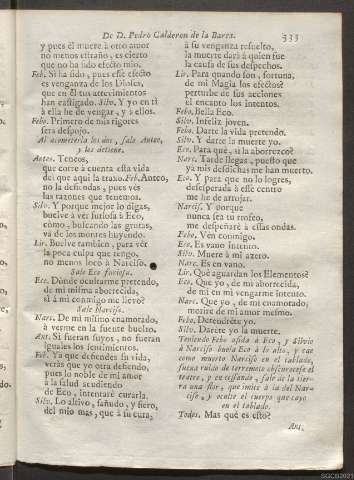 De D. Pedro Calderon de la Barca. 533
y pues él muere à otro amor
no menos estraño, es cierto
que no ha sido efecto mio.
Feb. Si ha sido, pues este efecto
es venganza de los Dioses,
que en él tus atrevimientos
han castigado. Silv. Y yo en ti
à ella he de vengar, y à ellos.
Febo. Primero de mis rigores
serà despojo.
Al acometerse los dos, sale Anteo,
y los detiene.
Anteo. Teneos,
que corre à cuenta esta vida
del que aqui la traxo. Feb. Anteo,
no la defiendas, pues vès
las razones que tenemos.
Silv. Y porque mejor lo digas,
buelve à vèr furiosa à Eco,
còmo, buscando las grutas,
và de los montes huyendo.
Lir. Buelve tambien, para vèr
la poca culpa que tengo,
no menos loco à Narciso.
Sale Eco furiosa.
Eco. Donde ocultarme pretendo,
de mi misma aborrecida,
si à mi conmigo me llevo?
Sale Narciso.
Narc. De mi mismo enamorado,
à verme en la fuente buelvo.
Ant. Si fueran suyos, no fueran
iguales los sentimientos.
Feb. Ya que defiendes su vida,
veràs que yo otra defiendo,
pues lo noble de mi amor
à la salud acudiendo
de Eco, intentarè curarla.
Silv. Lo altivo, sañudo, y fiero,
del mio mas, que à su cura,
à su venganza resuelto,
la muerte darà à quien fue
la causa de sus despechos.
Lir. Para quando son, fortuna,
de mi Magia los efectos?
perturbe de sus acciones
el encanto los intentos.
Febo. Bella Eco.
Silv. Infeliz joven.
Febo. Darte la vida pretendo.
Silv. Y darte la muerte yo.
Eco. Para què, si la aborrezco?
Narc. Tarde llegas, puesto que
ya mis desdichas me han muerto.
Eco. Y para que no lo logres,
desesperada à este centro
me he de arrojar.
Narcis. Y porque
nunca sea tu trofeo,
me despeñarè à essas ondas.
Febo. Vèn conmigo.
Eco. Es vano intento.
Silv. Muere à mi azero.
Narc. Es en vano.
Lir. Què aguardan los Elementos?
Eco. Que yo, de mi aborrecida,
de mi en mi vengarme intento.
Narc. Que yo, de mi enamorado,
morirè de mi amor mesmo.
Febo. Detendrète yo.
Silv. Darète yo la muerte.
Teniendo Febo asida à Eco, y Silvio
à Narciso buela Eco à lo alto, y cae
como muerto Narciso en el tablado,
suena ruido de terremoto obscurecese el
teatro, y en cessando, sale de la tierra
una flor, que imite à la del Narciso,
y oculte el cuerpo que cayò
en el tablado.
Todos. Mas què es esto?
Ant.
SGCB2021